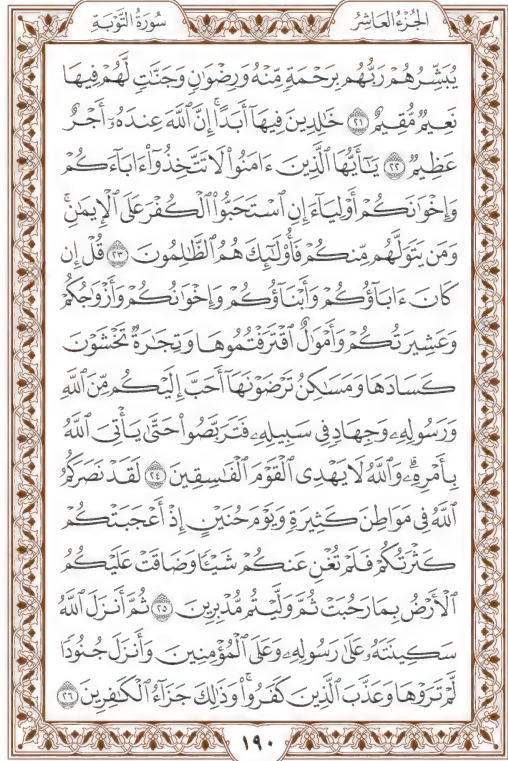 الجُزْءُ العَاشِرُ سُورَةُ التَّوْبَةِ
يُبَشِّرُهُمْ رَبُّهُم بِرَحْمَةٍ مِّنْهُ وَرِضْوَانٍ وَجَنَّاتٍ لَّهُمْ فِيهَا
نَعِيمٌ مُّقِيمٌ ٢١ خَالِدِينَ فِيهَا أَبَدًا ۚ إِنَّ اللَّهَ عِندَهُ أَجْرٌ
عَظِيمٌ ٢٢ يَا أَيُّهَا الَّذِينَ ءَامَنُوا لَا تَتَّخِذُوا ءَابَاءَكُمْ
وَإِخْوَانَكُمْ أَوْلِيَاءَ إِنِ اسْتَحَبُّوا الْكُفْرَ عَلَى الْإِيمَانِ ۚ
وَمَن يَتَوَلَّهُم مِّنكُمْ فَأُولَٰئِكَ هُمُ الظَّالِمُونَ ٢٣ قُلْ إِن
كَانَ ءَابَاؤُكُمْ وَأَبْنَاؤُكُمْ وَإِخْوَانُكُمْ وَأَزْوَاجُكُمْ
وَعَشِيرَتُكُمْ وَأَمْوَالٌ اقْتَرَفْتُمُوهَا وَتِجَارَةٌ تَخْشَوْنَ
كَسَادَهَا وَمَسَاكِنُ تَرْضَوْنَهَا أَحَبَّ إِلَيْكُم مِّنَ اللَّهِ
وَرَسُولِهِ وَجِهَادٍ فِي سَبِيلِهِ فَتَرَبَّصُوا حَتَّىٰ يَأْتِيَ اللَّهُ
بِأَمْرِهِ ۗ وَاللَّهُ لَا يَهْدِي الْقَوْمَ الْفَاسِقِينَ ٢٤ لَقَدْ نَصَرَكُمُ
اللَّهُ فِي مَوَاطِنَ كَثِيرَةٍ وَيَوْمَ حُنَيْنٍ إِذْ أَعْجَبَتْكُمْ
كَثْرَتُكُمْ فَلَمْ تُغْنِ عَنكُمْ شَيْئًا وَضَاقَتْ عَلَيْكُمُ
الْأَرْضُ بِمَا رَحُبَتْ ثُمَّ وَلَّيْتُم مُّدْبِرِينَ ٢٥ ثُمَّ أَنزَلَ اللَّهُ
سَكِينَتَهُ عَلَىٰ رَسُولِهِ وَعَلَى الْمُؤْمِنِينَ وَأَنزَلَ جُنُودًا
لَّمْ تَرَوْهَا وَعَذَّبَ الَّذِينَ كَفَرُوا ۚ وَذَٰلِكَ جَزَاءُ الْكَافِرِينَ ٢٦
١٩٠